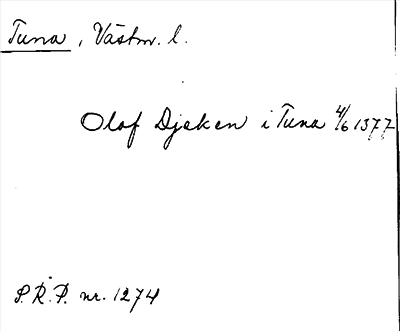 Tuna, Västm. l.
Olof Djeken i Tuna 4/6 1377
S.R.P. nr. 1274